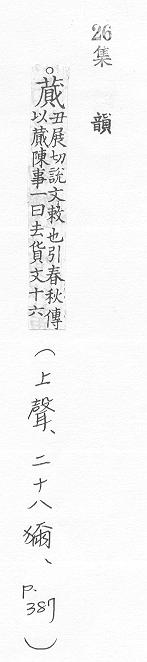 26
集韻
。蕆
丑展切說文敕也引春秋傳
以蕆陳事一曰去貨文十六
(上聲、二十八獮、
p.
387)